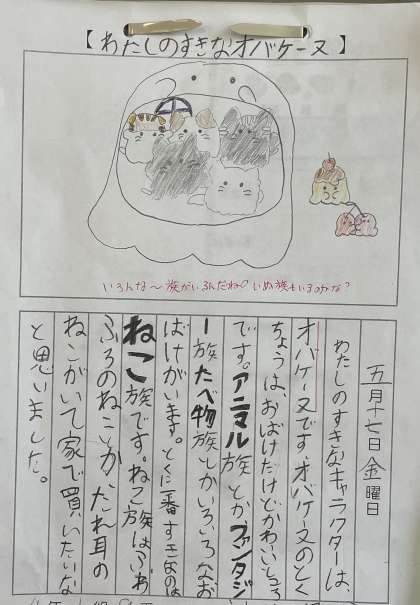 【わたしのすきなオバケーヌ】
いろんな〜族がいるんだね♡いぬ族もいるのかな?
五月十七日金曜日
わたしのすきなキャラクターは、
オバケーヌです。オバケーヌのとく
ちょうは、おばけだけどかわいいところ
です。アニマル族とかファンタジ
ー族たべ物族とかいろいろなお
ばけがいます。とくに一番すきなのは
ねこ族です。ねこ族はふわ
ふろのねことか、たれ耳の
ねこがいて家で買いたいな
と思いました。